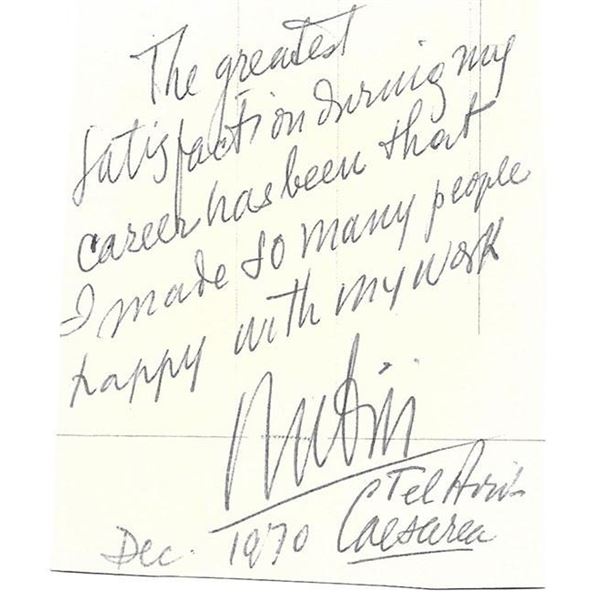 The greatest
satisfaction during my
career has been that
I made so many people
happy with my work
Rubin
Tel Aviv
Dec. 1970 Caesarea